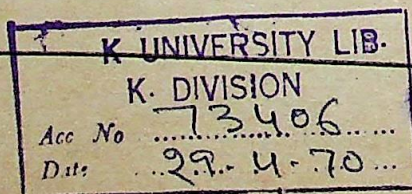 K UNIVERSITY LIB.
K. DIVISION
Acc No 73406
Date 29.4.70